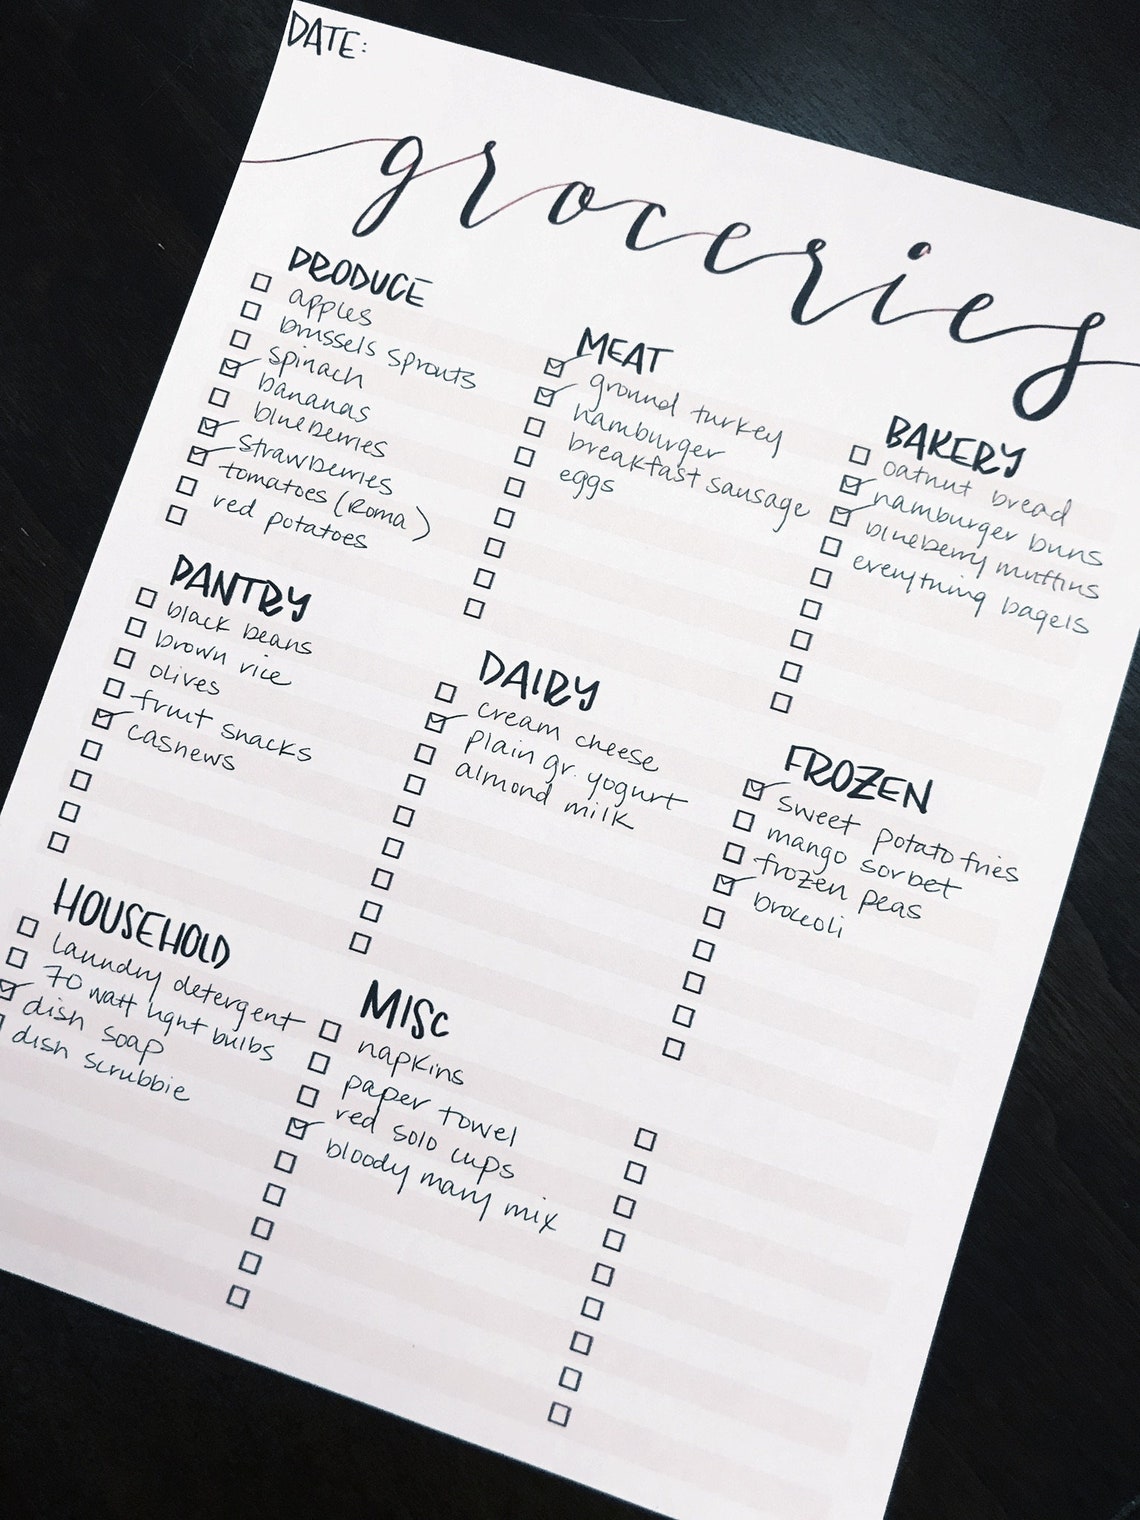 DATE:
groceries
PRODUCE
apples
brussels sprouts
spinach
bananas
blueberries
strawberries
tomatoes (Roma)
red potatoes
MEAT
ground turkey
hamburger
breakfast sausage
eggs
BAKERY
oatnut bread
hamburger buns
blueberry muffins
everything bagels
PANTRY
black beans
brown rice
olives
fruit snacks
cashews
DAIRY
cream cheese
plain gr. yogurt
almond milk
FROZEN
sweet potato fries
mango sorbet
frozen peas
broccoli
HOUSEHOLD
laundry detergent
70 watt light bulbs
dish soap
dish scrubbie
MISC
napkins
paper towel
red solo cups
bloody mary mix